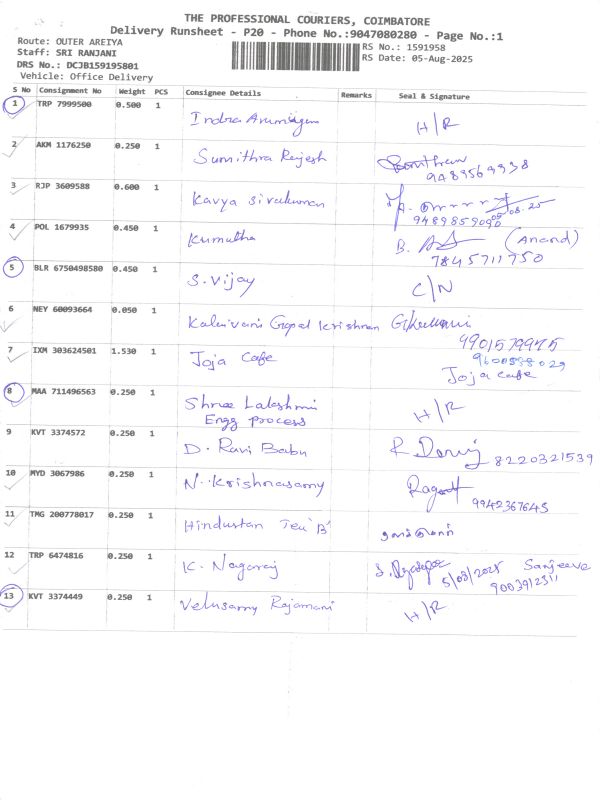 THE PROFESSIONAL COURIERS, COIMBATORE
Delivery Runsheet - P20 - Phone No.:9047080280 - Page No.:1
Route: OUTER AREIYA
RS No.: 1591958
Staff: SRI RANJANI
RS Date: 05-Aug-2025
DRS No.: DCJB159195801
Vehicle: Office Delivery
S No Consignment No Weight PCS Consignee Details Remarks Seal & Signature
1 TRP 7999500 0.500 1
Indra Arumugam H/R
2 AKM 1176250 0.250 1
Sumithra Rajesh
3 RJP 3609588 0.600 1
Kavya Sivakumar
9489859090 05.08.25
4 POL 1679935 0.450 1
Kumutha B. (Anand)
7845711750
5 BLR 6750498580 0.450 1
S. Vijay C/N
6 NEY 60093664 0.050 1
Kalaivani Gopal Krishnan
9901579975
7 IXM 303624501 1.530 1
Joja Cafe
Joja cafe
8 MAA 711496563 0.250 1
Shree Lakshmi H/R
Engg process
9 KVT 3374572 0.250 1
D. Ravi Babu 8220321539
10 MYD 3067986 0.250 1
N. Krishnasamy
9942367645
11 TMG 200778017 0.250 1
Hindustan Teu 'B'
12 TRP 6474816 0.250 1
K. Nagaraj 5/08/2025 Sanjeeve
9003912311
13 KVT 3374449 0.250 1
Velusamy Rajamani H/R